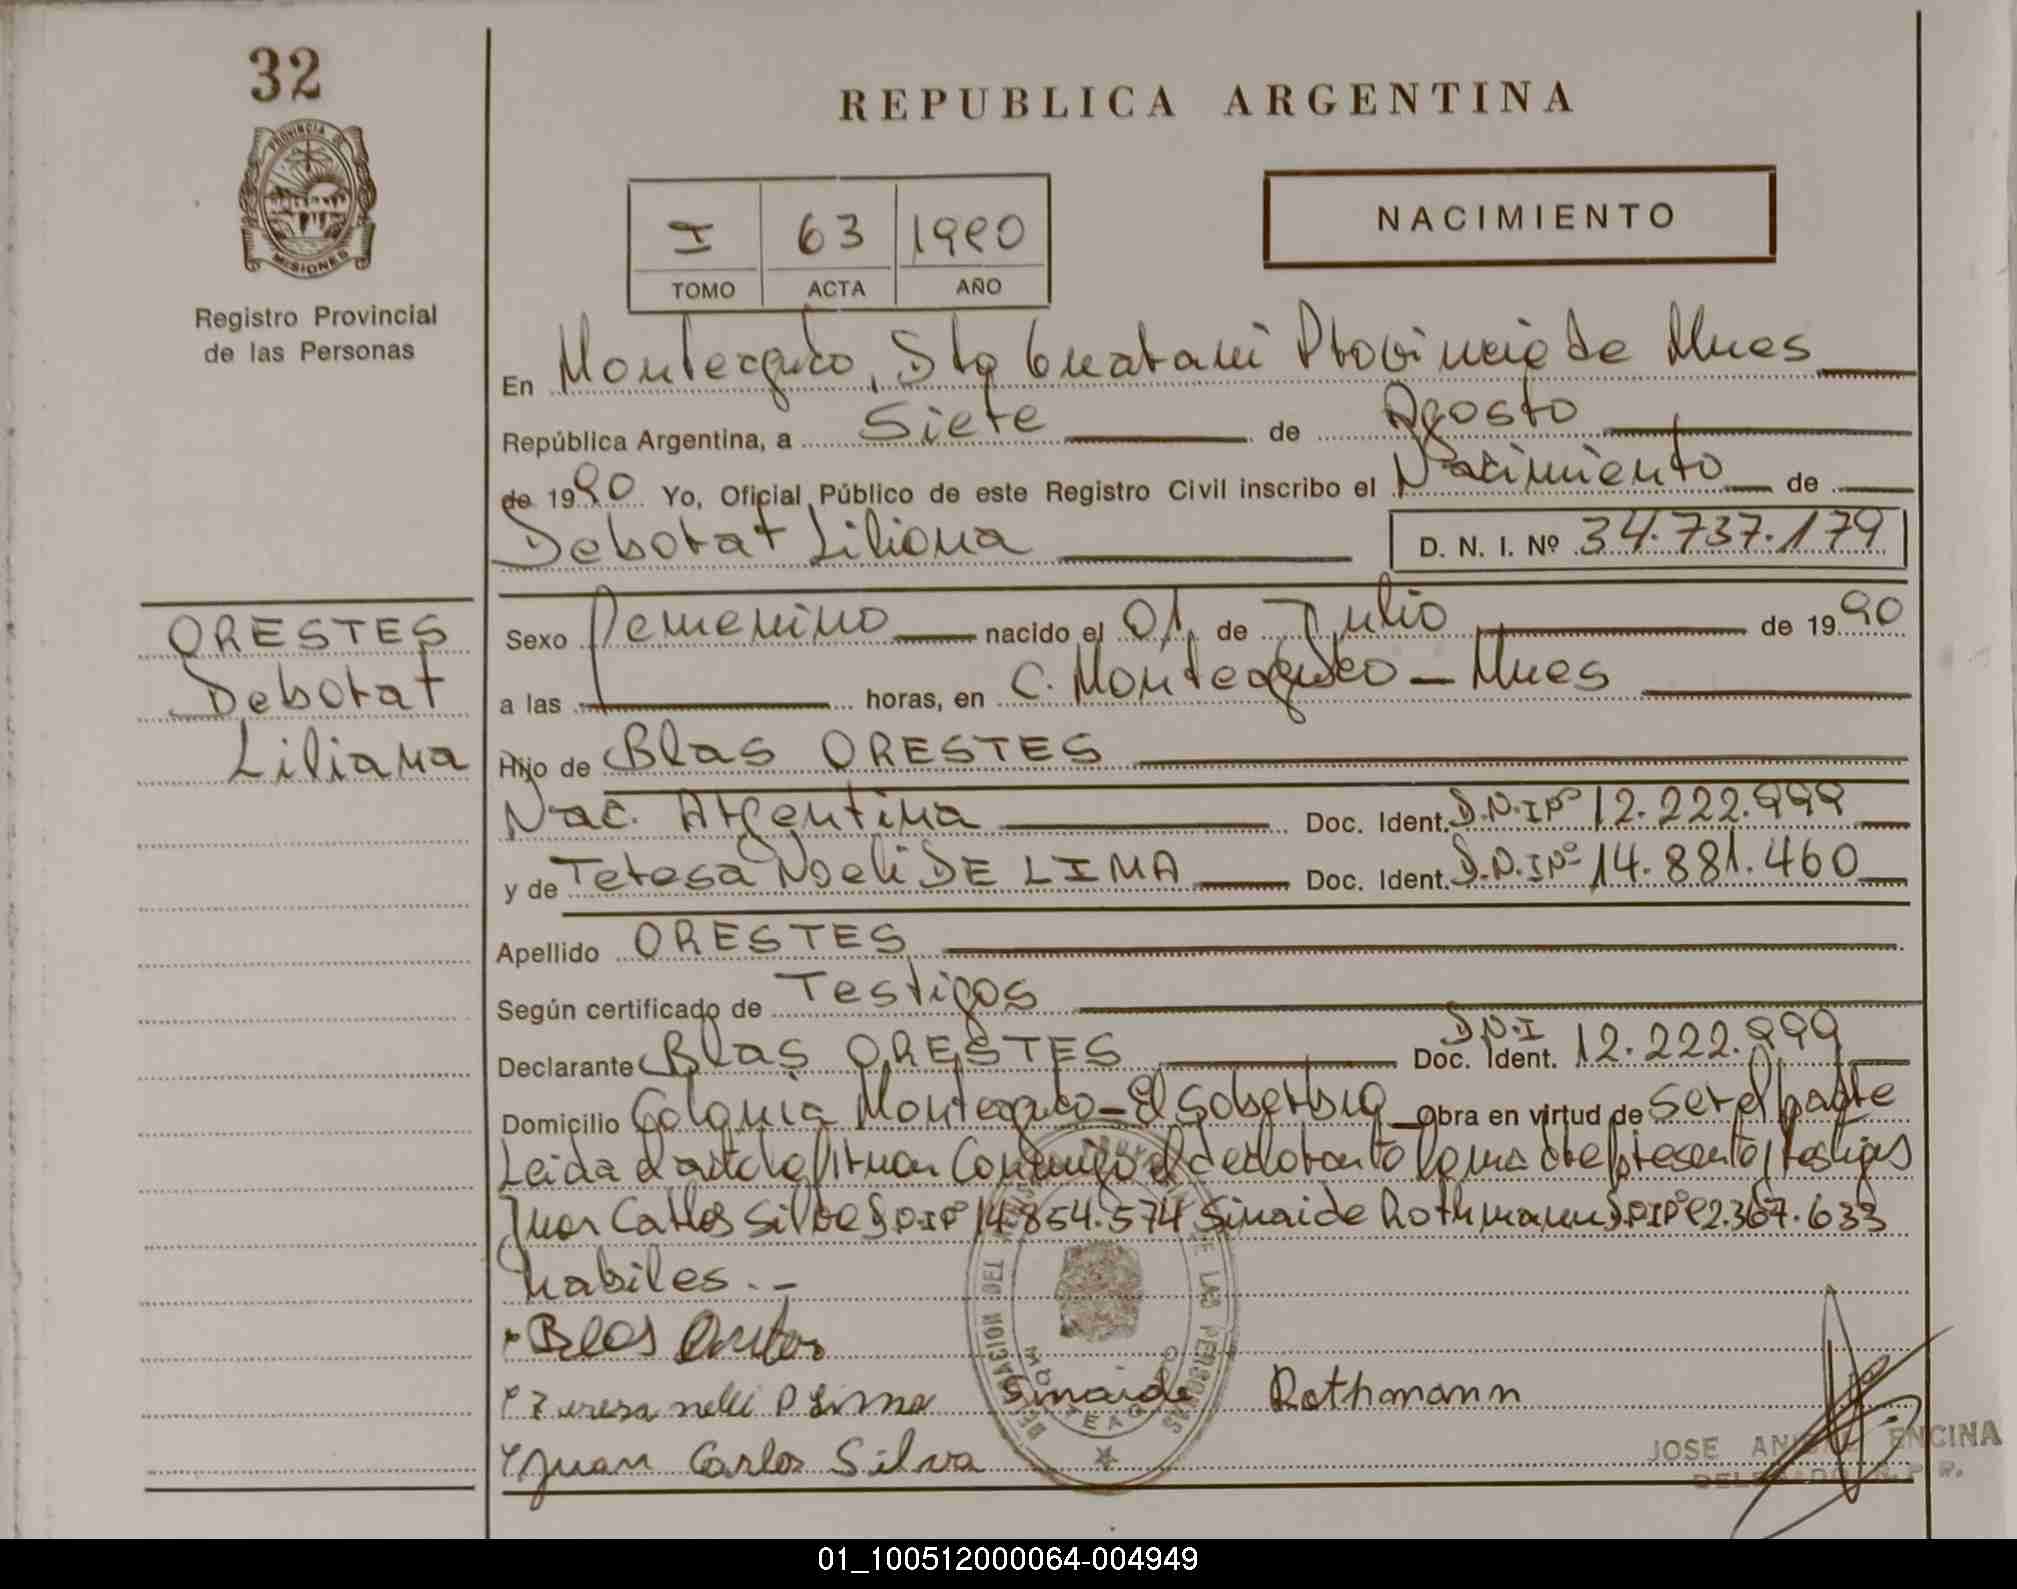 32
REPUBLICA ARGENTINA
PROVINCIA DE
MISIONES
Registro Provincial
de las Personas
I 63 1990
TOMO ACTA AÑO
NACIMIENTO
En Monteagudo, Dto Guarani Provincia de Mnes
República Argentina, a Siete de Agosto
de 1990 Yo, Oficial Público de este Registro Civil inscribo el Nacimiento de
Deborat Liliana D. N. I. Nº 34.737.179
ORESTES
Deborat
Liliana
Sexo Femenino nacido el 01 de Julio de 1990
a las horas, en C. Monteagudo - Mnes
Hijo de Blas ORESTES
Nac. Argentina Doc. Ident. D.N.I Nº 12.222.999
y de Teresa Noeli DE LIMA Doc. Ident. D.N.I Nº 14.881.460
Apellido ORESTES
Según certificado de Testigos
Declarante Blas ORESTES Doc. Ident. D.N.I 12.222.999
Domicilio Colonia Monteagudo - El Soberbio Obra en virtud de ser el padre
Leida el acta la firman Conmigo el declarante la madre presente, testigos
Juan Carlos Silva D.N.I Nº 14.854.574 Sinaide Rothmann D.N.I Nº 92.367.633
habiles.-
Blas Orestes
Teresa neli D Lima Sinaide Rothmann
Juan Carlos Silva
DELEGACION DEL DE LAS PERSONAS
JOSE ANIBAL ENCINA
DELEGADO R. P. P.
01_100512000064-004949